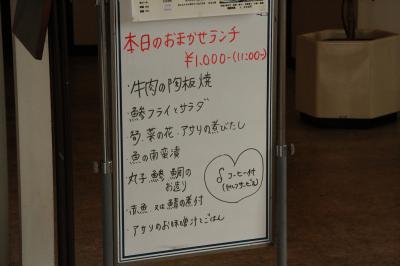 本日のおまかせランチ
¥1,000-(11:00~)
・牛肉の陶板焼
・鯵フライとサラダ
・筍、菜の花・アサリの煮びたし
・魚の南蛮漬
・丸子、鯵、鯛の
お造り
・赤魚 又は鯖の煮付
・アサリのお味噌汁とごはん
コーヒー付
(セルフサービス)